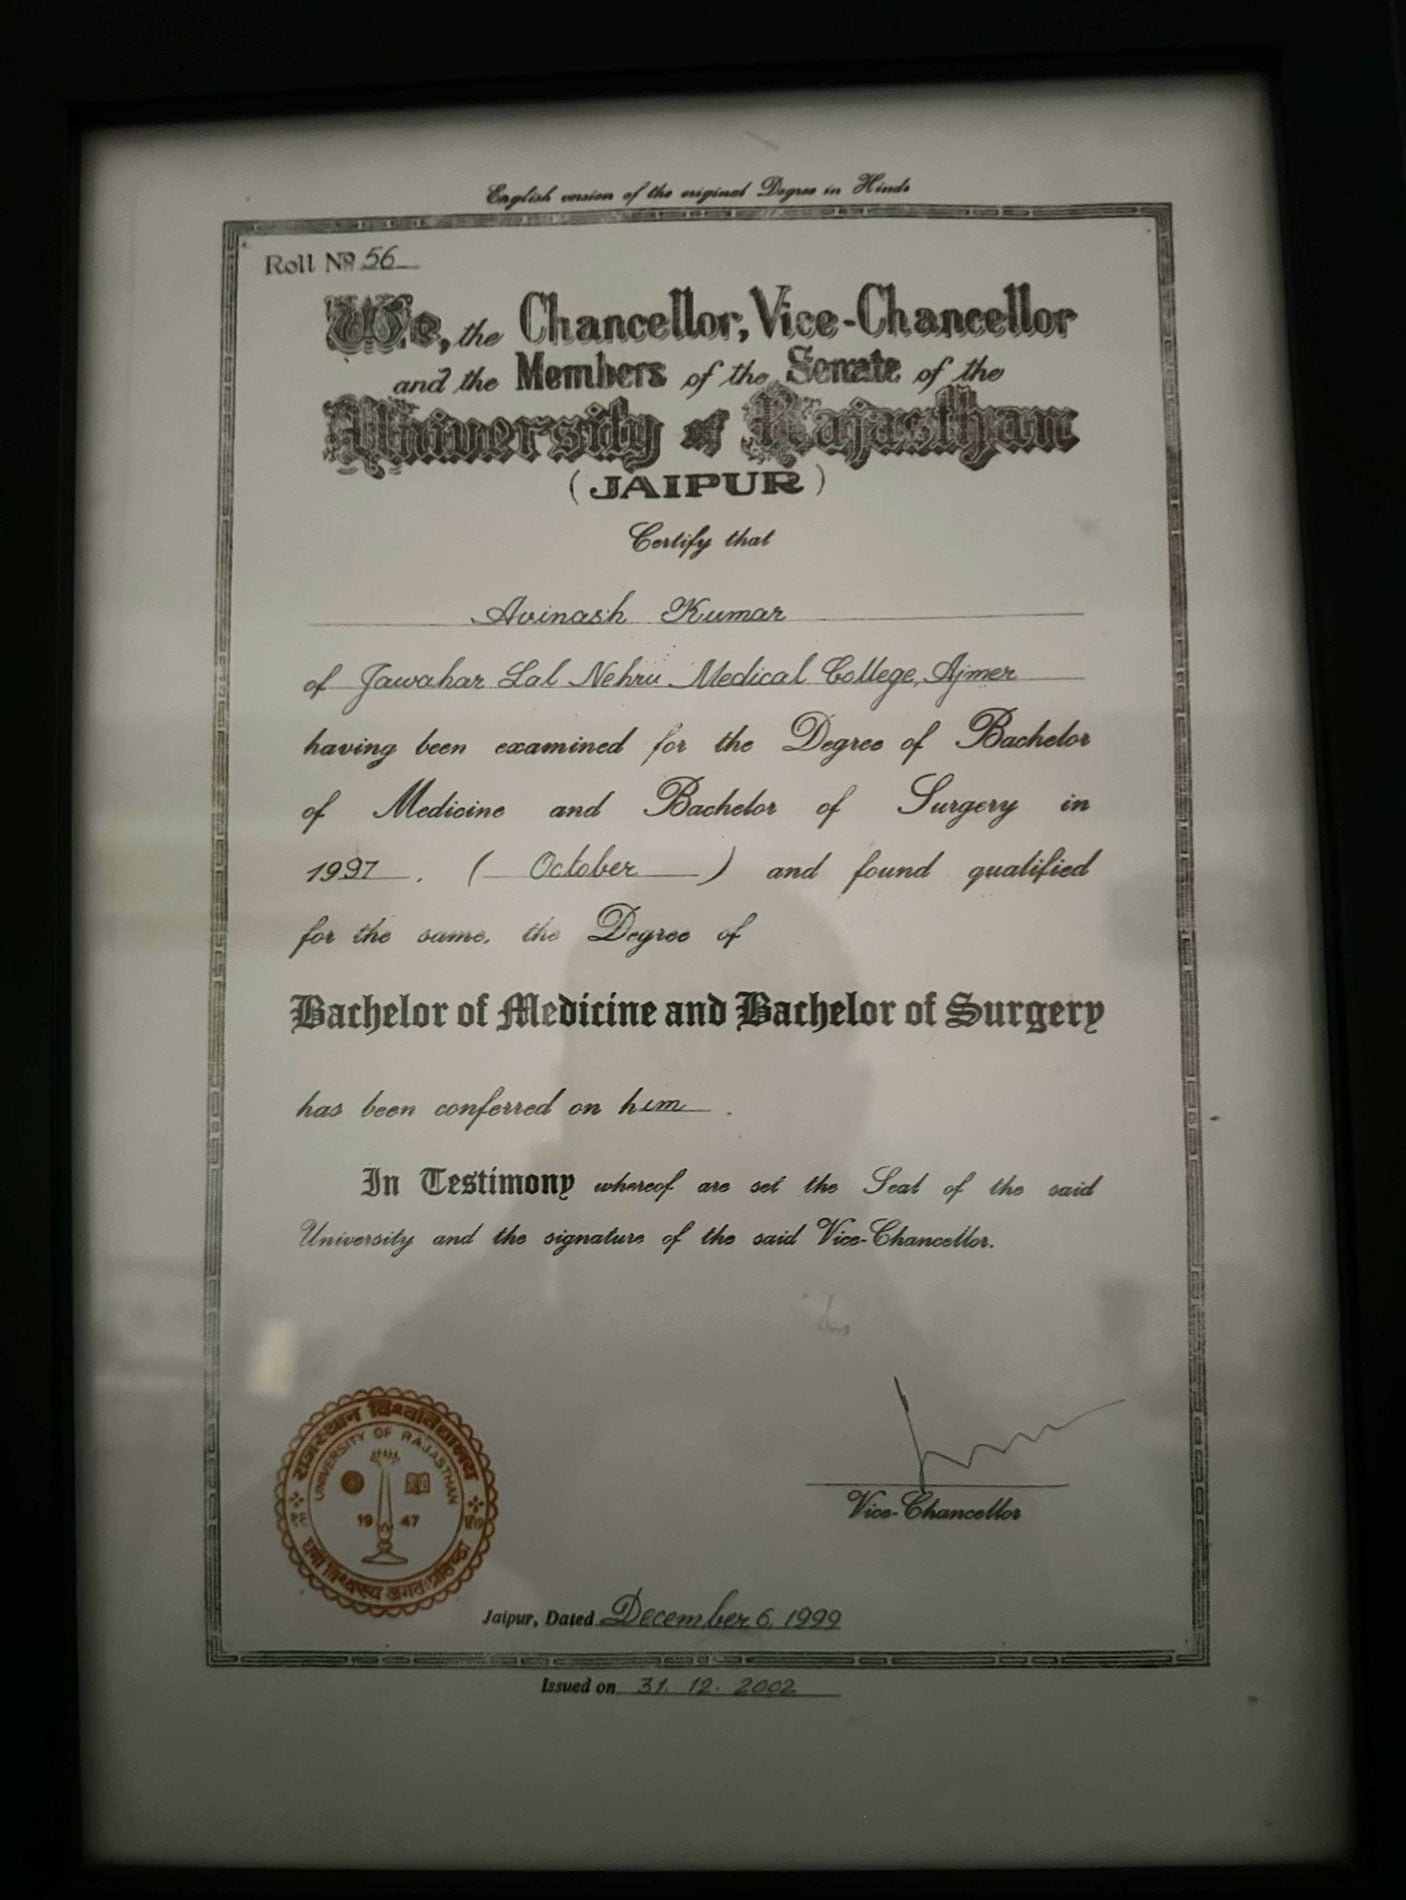 English version of the original Degree in Hindi
Roll No 56
We, the Chancellor, Vice-Chancellor
and the Members of the Senate of the
University of Rajasthan
(JAIPUR)
Certify that
Avinash Kumar
of Jawahar Lal Nehru Medical College, Ajmer
having been examined for the Degree of Bachelor
of Medicine and Bachelor of Surgery in
1997. (October) and found qualified
for the same, the Degree of
Bachelor of Medicine and Bachelor of Surgery
has been conferred on him.
In Testimony whereof are set the Seal of the said
University and the signature of the said Vice-Chancellor.
राजस्थान विश्वविद्यालय
UNIVERSITY OF RAJASTHAN
1947
विश्वस्य जगतः प्रतिष्ठा
Vice-Chancellor
Jaipur, Dated December 6, 1999
Issued on 31. 12. 2002